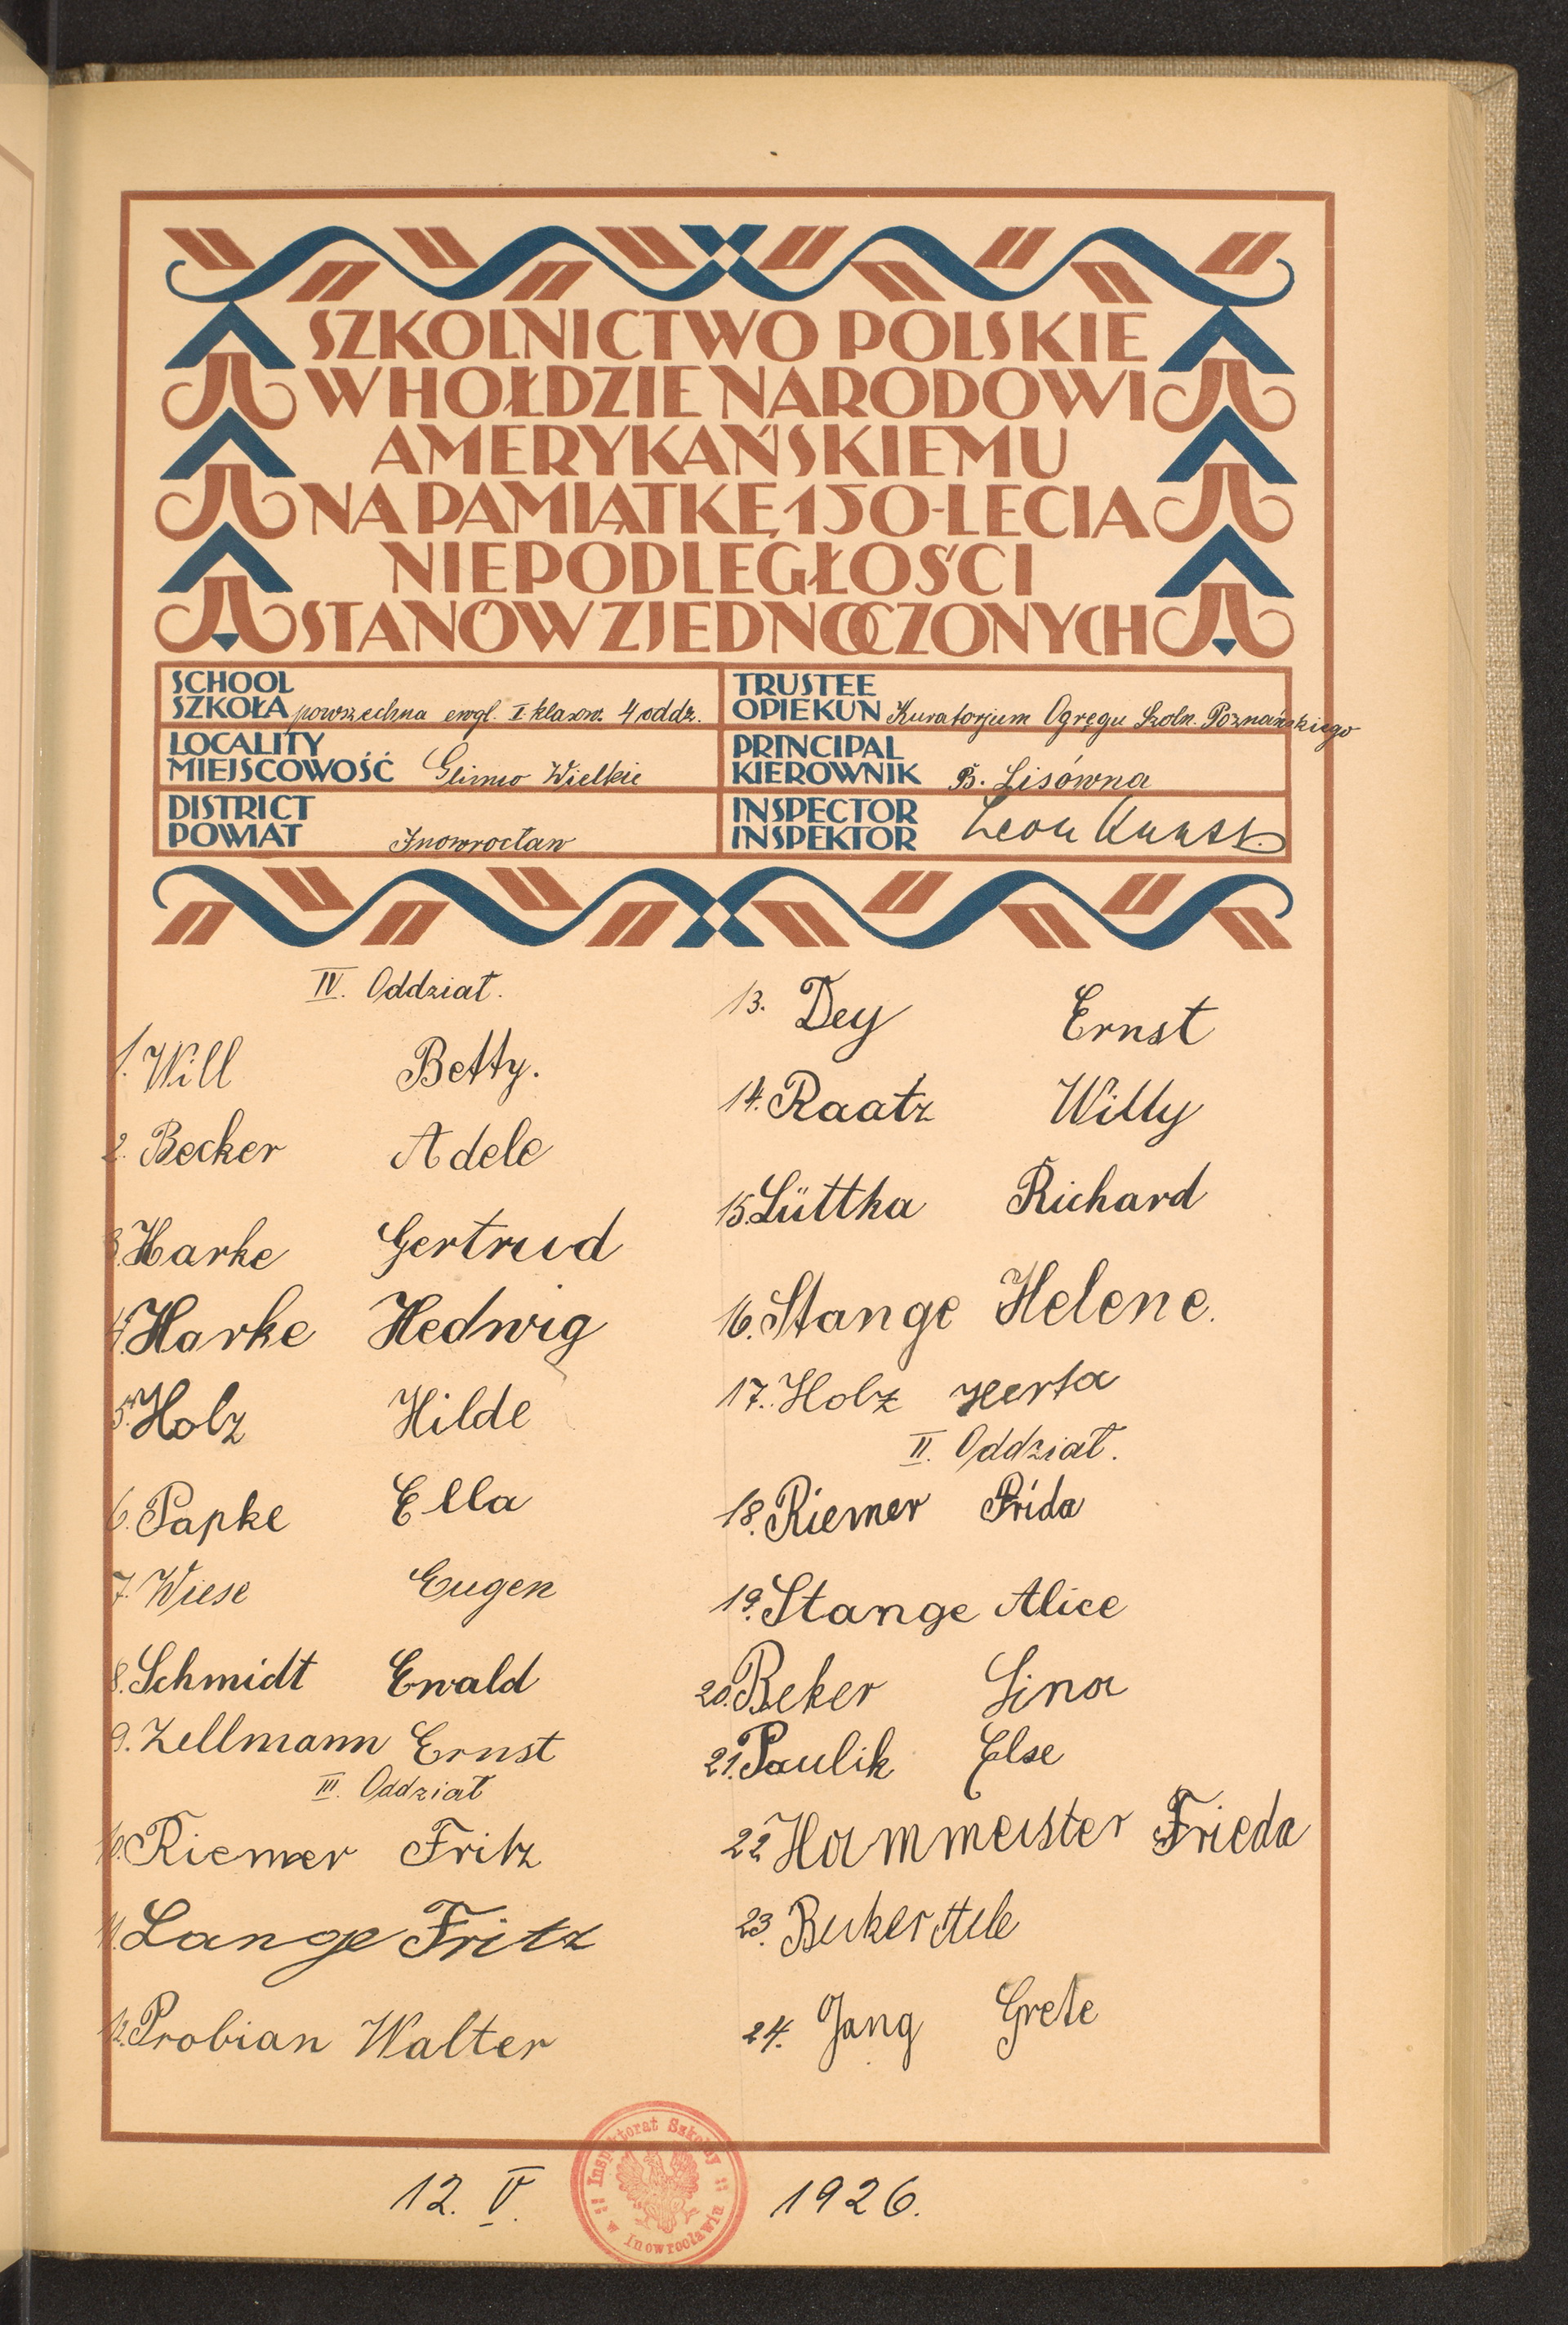 SZKOLNICTWO POLSKIE
W HOŁDZIE NARODOWI
AMERYKAŃSKIEMU
NA PAMIĄTKĘ 150-LECIA
NIEPODLEGŁOŚCI
STANÓW ZJEDNOCZONYCH
SCHOOL
SZKOŁA powszechna ewgl. I klasow. 4 oddz.
TRUSTEE
OPIEKUN Kuratorjum Ogręgu Szoln. Poznańskiego
LOCALITY
MIEJSCOWOŚĆ Glinno Wielkie
PRINCIPAL
KIEROWNIK B. Lisówna
DISTRICT
POWIAT Inowrocław
INSPECTOR
INSPEKTOR Leon Kunst
IV. Oddział.
1. Will Betty.
2. Becker Adele
3. Harke Gertrud
4. Harke Hedwig
5. Holz Hilde
6. Papke Ella
7. Wiese Eugen
8. Schmidt Ewald
9. Zellmann Ernst
III. Oddział
10. Riemer Fritz
11. Lange Fritz
12. Probian Walter
13. Dey Ernst
14. Raatz Willy
15. Lüttka Richard
16. Stange Helene.
17. Holz Herta
II. Oddział.
18. Riemer Frida
19. Stange Alice
20. Beker Lina
21. Paulik Else
22 Hammeister Frieda
23. Beker
24. Jang Grete
12. V. 1926.
Inspektorat Szkolny
w Inowrocławiu